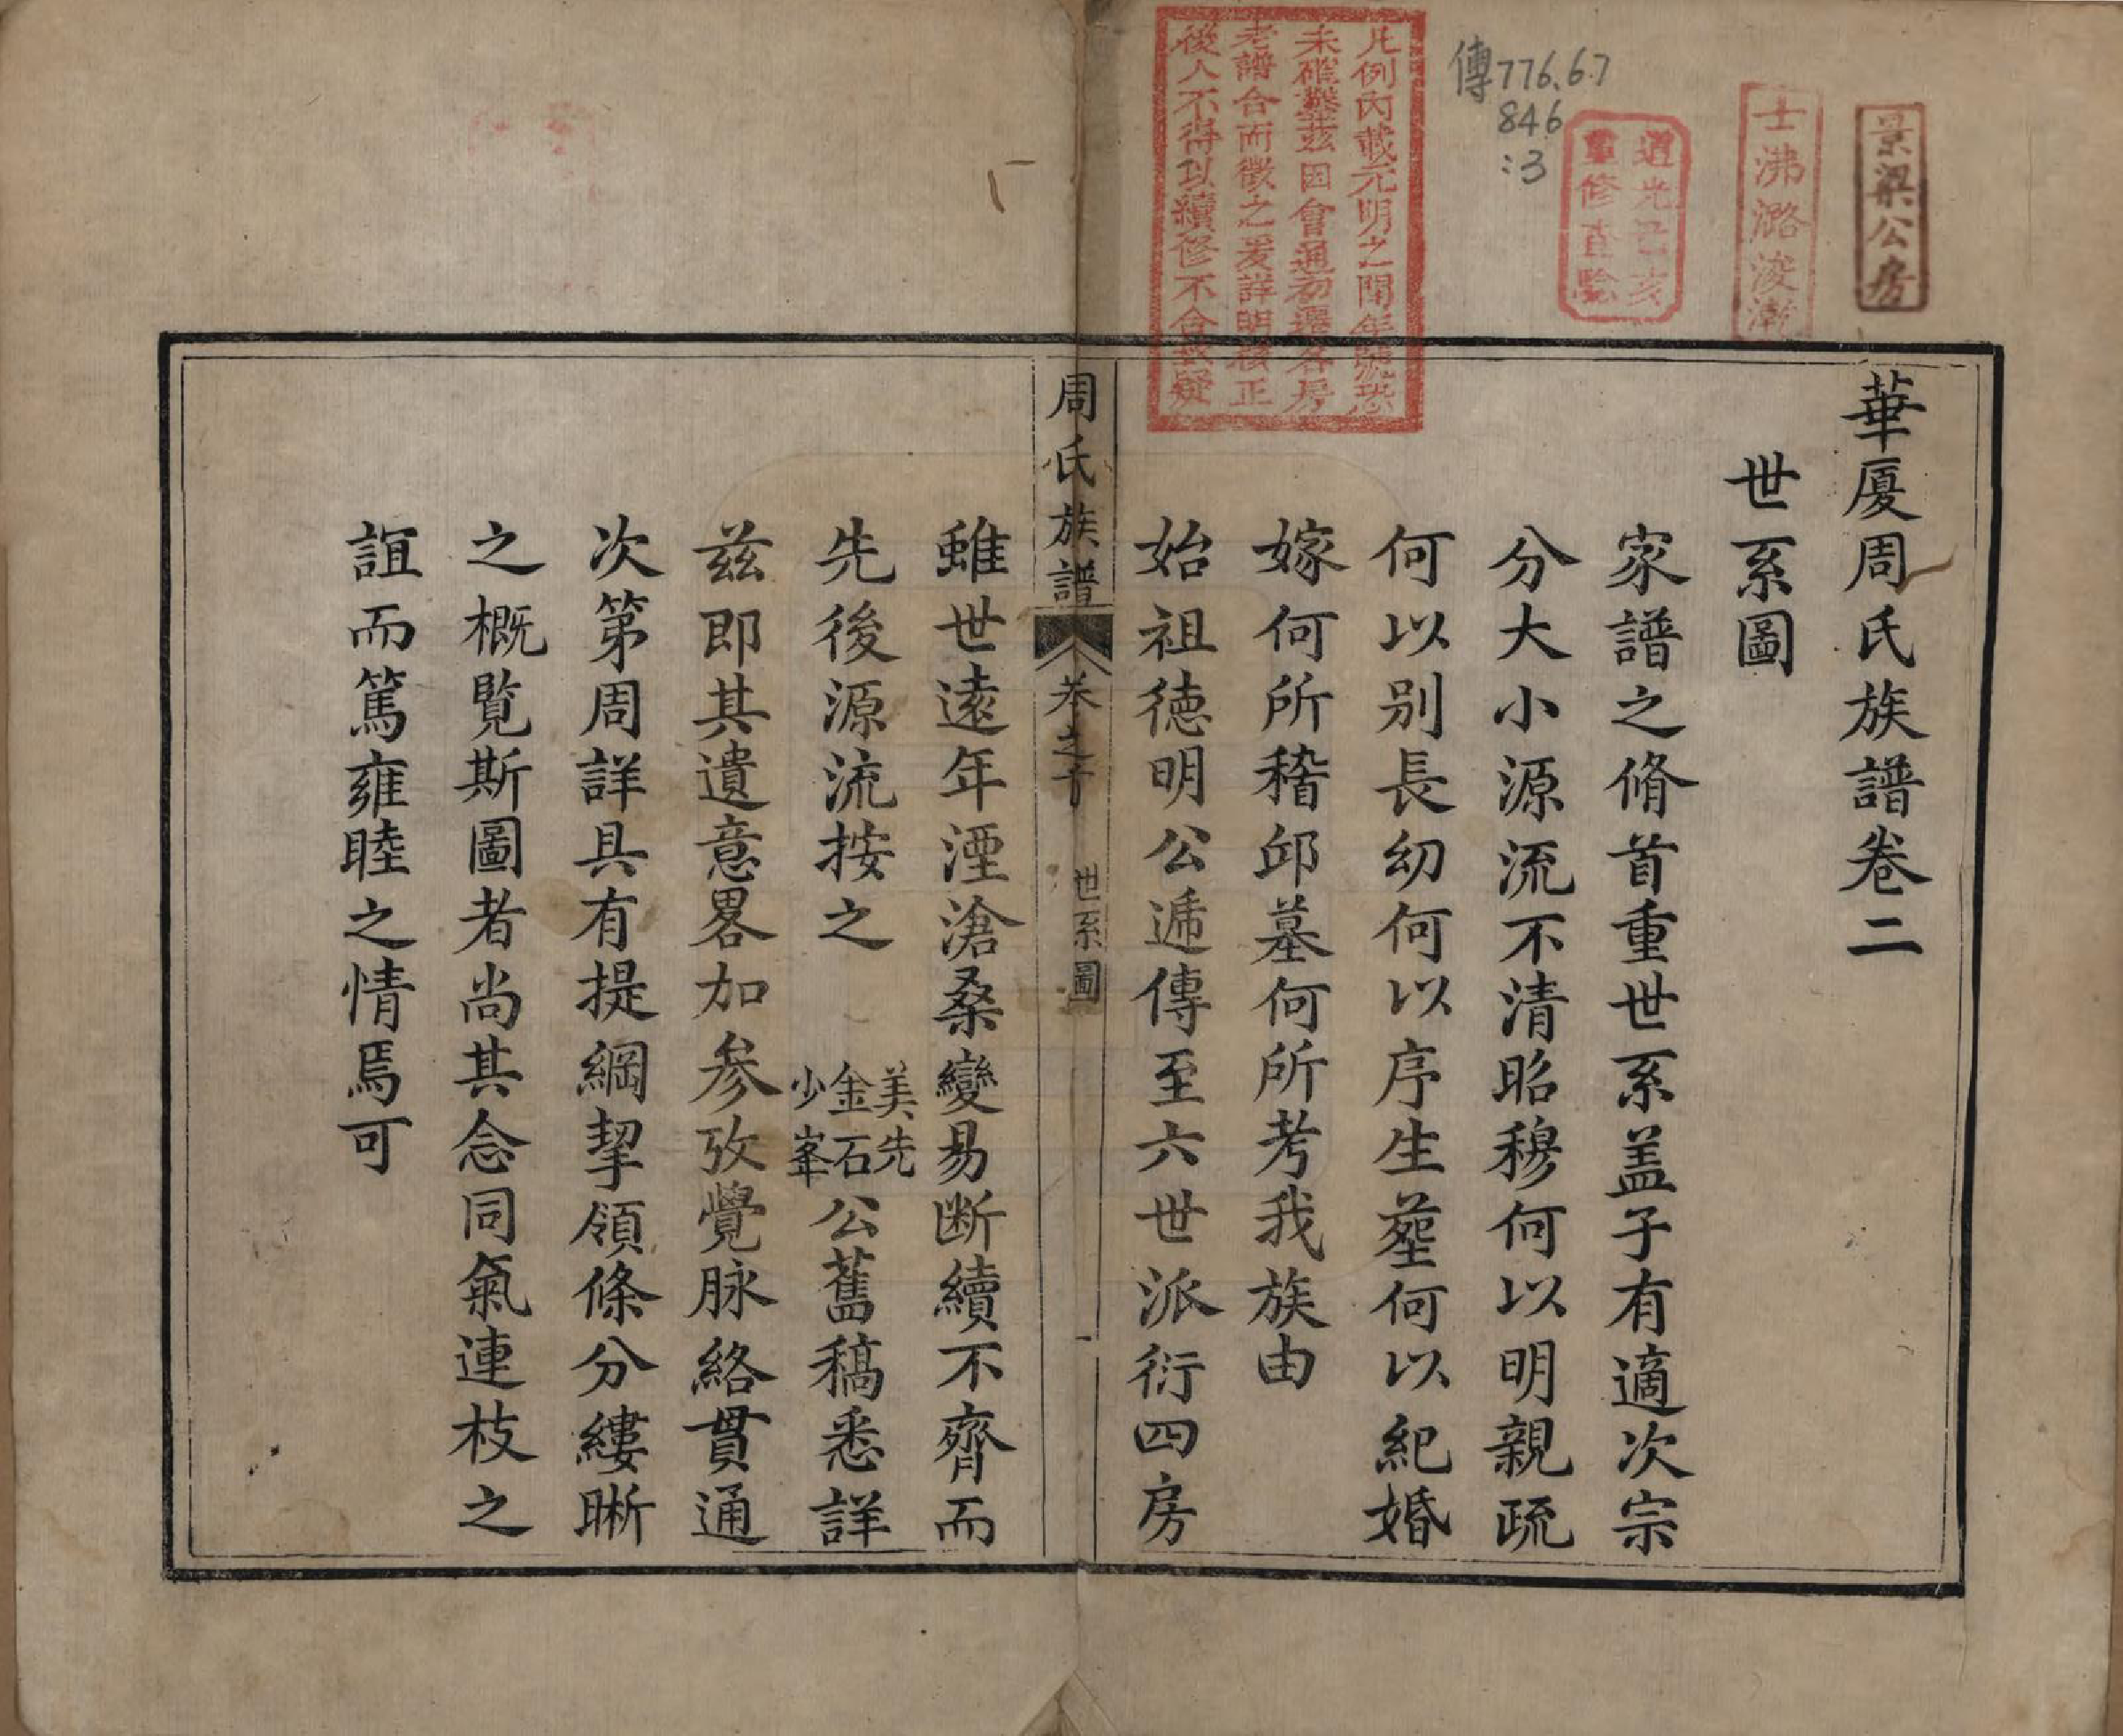 華厦周氏族譜卷二
世系圖
家譜之脩首重世系盖子有適次宗
分大小源流不清昭穆何以明親疏
何以别長幼何以序生塟何以紀婚
嫁何所稽邱墓何所考我族由
始祖德明公遞傳至六世派衍四房
周氏族譜 卷之 世系圖 一
雖世遠年湮滄桑變易断續不齊而
先後源流按之 美先金石少峯公舊稿悉詳
兹即其遺意畧加參攷覺脉絡貫通
次第周詳具有提綱挈領條分縷晰
之概覧斯圖者尚其念同氣連枝之
誼而篤雍睦之情焉可
景梁公房
士沸潞浚
道光己亥
重修查驗
傳776.67
846
:3
凡例內載元明之間年號恐
未確鑿茲因會通初遷各房
老譜合而徵之爰詳明核正
後人不得以續修不合致疑